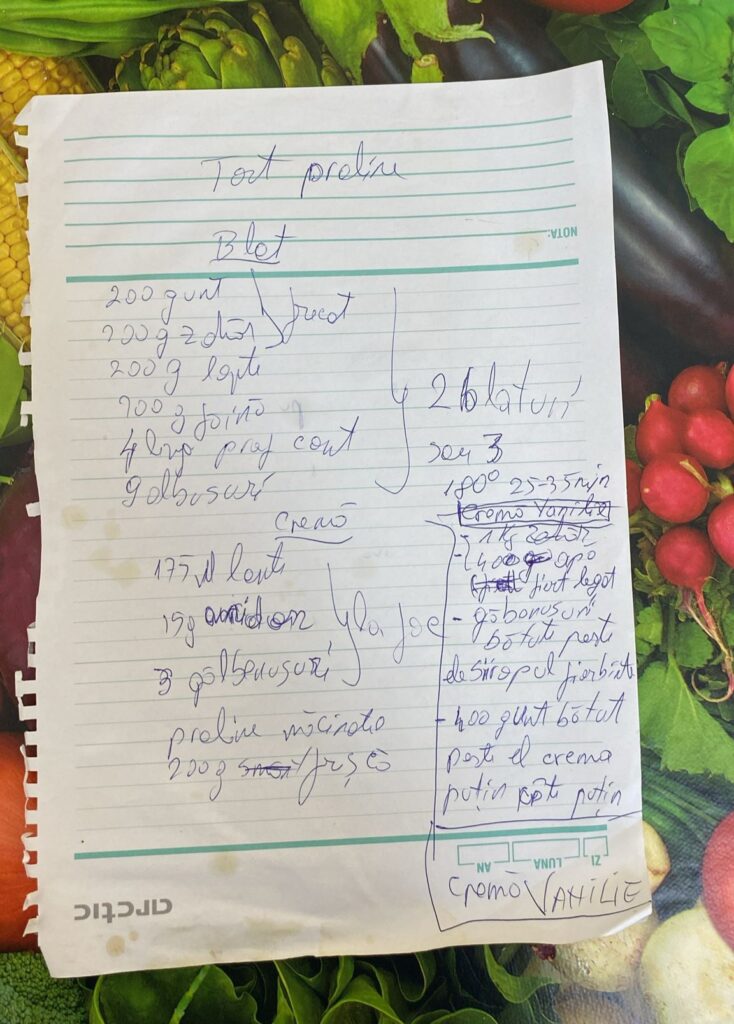 Tort praline
NOTA:
Blat
200 g unt
200 g zahăr
frecat
200 g lapte
g făină
4 ling praf cont
9 gălbușuri
2 blaturi
sau 3
180° 25-35 min
Cremă
175 lapte
15 g amidon
3 gălbenușuri
la foc
praline măcinate
200 g frișcă
Cremă Vanilie
- 1 kg zahăr
- 400 g apă
fiert legat
- găbenusuri
bătute peste
ele siropul fierbinte
- 400 g unt bătut
peste el crema
puțin câte puțin
ZI LUNA AN
cremă VANILIE
arctic